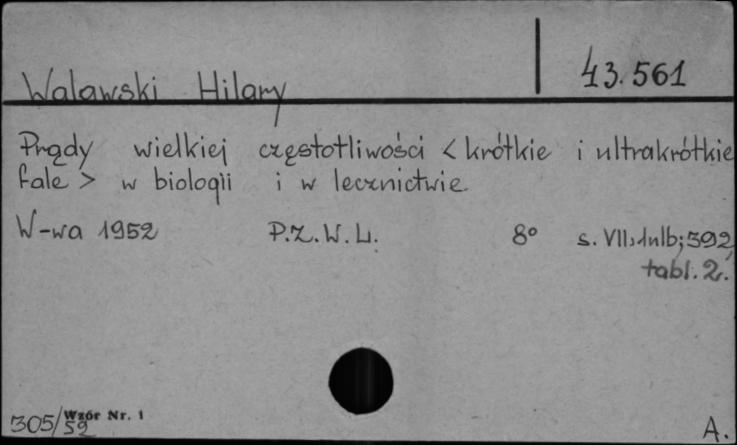 Walawski Hilary 43.561
Prądy wielkiej częstotliwości < krótkie i ultrakrótkie
fale > w biologii i w lecznictwie
W-wa 1952 P.Z.W.L. 8° s. VII, 1nlb; 392,
tabl. 2.
305/52 Wzór Nr. 1 A.